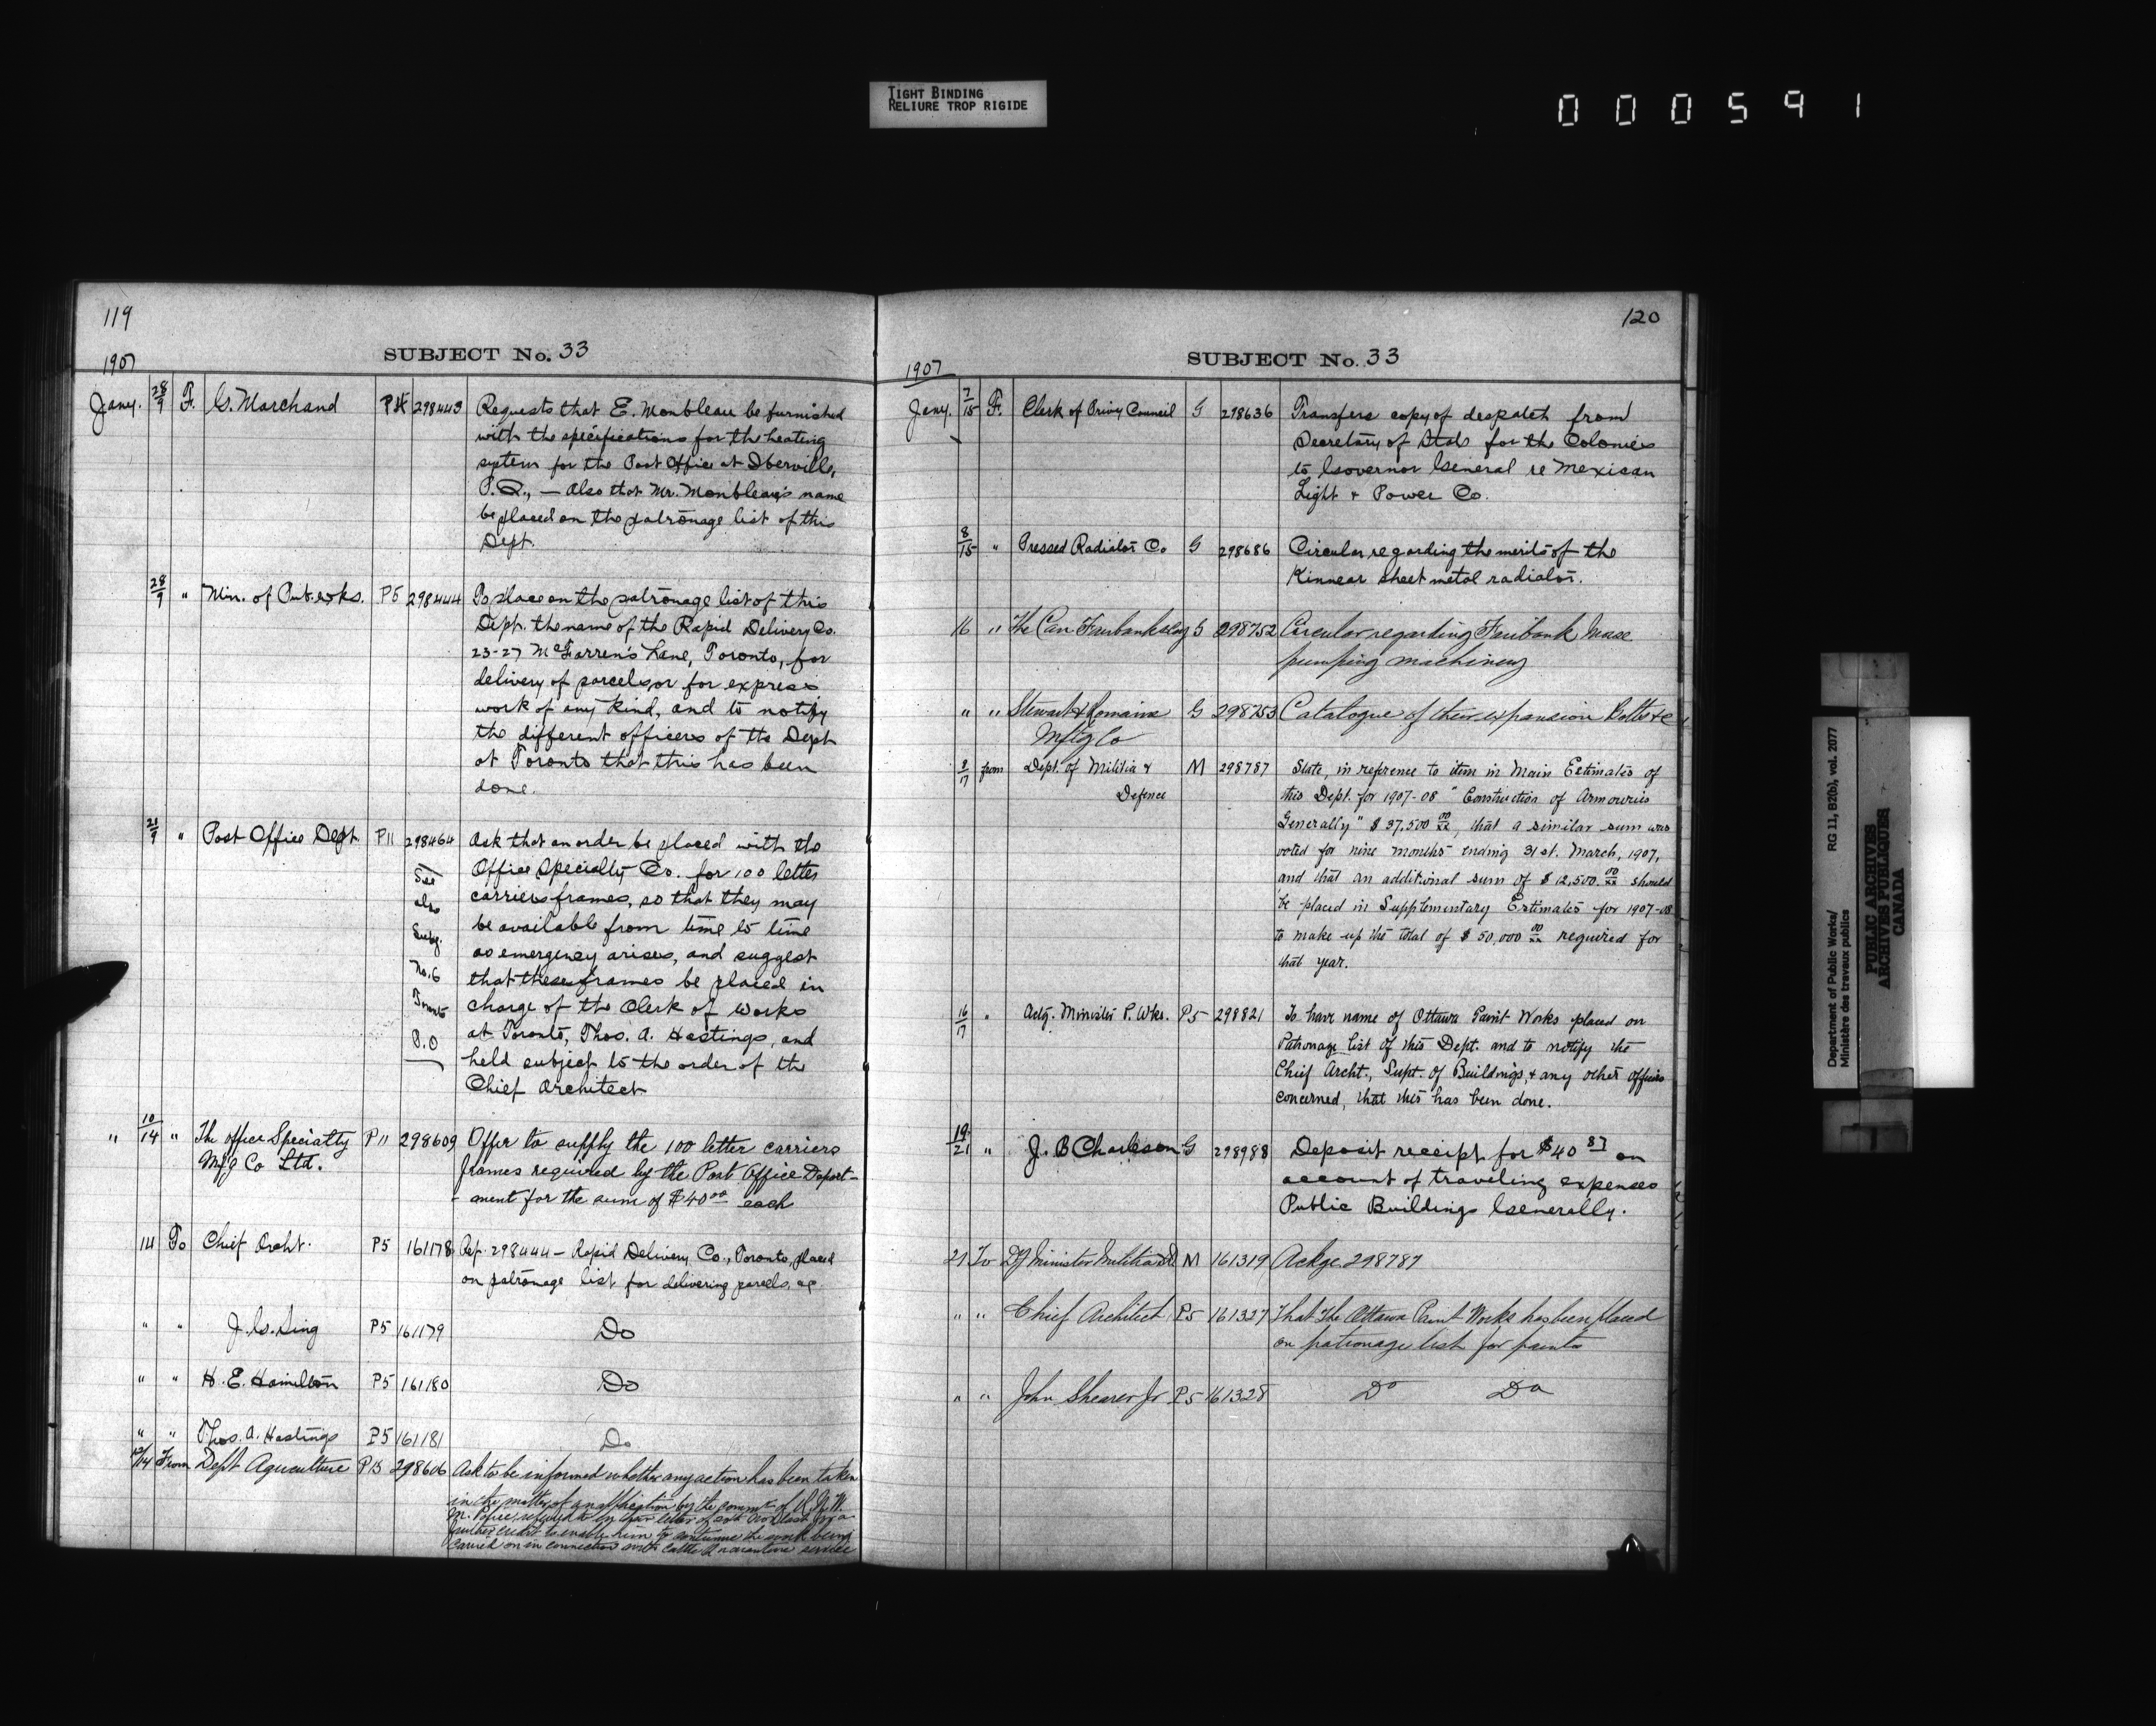 TIGHT BINDING
RELIURE TROP RIGIDE
000591
119
SUBJECT No. 33
1907
Jany. 28/9 F. G. Marchand 298443 Requests that E. Monbleau be furnished
with the specifications for the heating
system for the Post Office at Iberville,
P.Q., — Also that Mr. Monbleau's name
be placed on the patronage list of this
Dept.
28/9 " Min. of Pub. Wks. P5 298444 To place on the patronage list of this
Dept. the name of the Rapid Delivery Co.
23-27 McFarren's Lane, Toronto, for
delivery of parcels, or for express
work of any kind, and to notify
the different officers of the Dept
at Toronto that this has been
done.
21/9 " Post Office Dept P11 298464 Ask that an order be placed with the
See Office Specialty Co. for 100 letter
also carriers frames, so that they may
Subj. be available from time to time
No. 6 as emergency arises, and suggest
Toronto that these frames be placed in
P.O charge of the Clerk of Works
at Toronto, Thos. A. Hastings, and
held subject to the order of the
Chief Architect
" 10/14 " The Office Specialty P11 298609 Offer to supply the 100 letter carriers
Mfg Co Ltd. frames required by the Post Office Depart-
-ment for the sum of $40 00 each
14 To Chief Archt. P5 161178 Ref. 298444 — Rapid Delivery Co., Toronto, placed
on patronage list for delivering parcels, &c.
" " J. G. Sing P5 161179 Do
" " H. E. Hamilton P5 161180 Do
" " Thos. A. Hastings P5 161181 Do
12/14 From Dept Agriculture P13 298606 Ask to be informed whether any action has been taken
in the matter of an application by the Commr of R. N. W.
M. Police, referred to in their letter of 20th Nov last, for a
further credit to enable him to continue the work being
carried on in connection with Cattle Quarantine service
120
SUBJECT No. 33
1907
Jany. 7/15 F. Clerk of Privy Council G 298636 Transfers copy of despatch from
Secretary of State for the Colonies
to Governor General re Mexican
Light & Power Co.
8/15 " Pressed Radiator Co G 298686 Circular regarding the merits of the
Kinnear sheet metal radiator.
16 " The Can. Fairbanks Coy G 298752 Circular regarding Fairbank Morse
pumping machinery
" " Stewart & Romaine G 298753 Catalogue of their expansion Bolts &c
Mftg Co
8/17 from Dept. of Militia & M 298787 State, in reference to item in Main Estimates of
Defence this Dept. for 1907-08 "Construction of Armouries
Generally" $37,500 00/xx, that a similar sum was
voted for nine months ending 31st. March, 1907,
and that an additional sum of $12,500. 00/xx should
be placed in Supplementary Estimates for 1907-08
to make up the total of $50,000 00/xx required for
that year.
16/17 " Actg. Minister P. Wks. P5 298821 To have name of Ottawa Paint Works placed on
Patronage list of this Dept. and to notify the
Chief Archt., Supt. of Buildings, & any other officers
concerned, that this has been done.
19/21 " J. B Charleson G 298988 Deposit receipt for $40 87 on
account of traveling expenses
Public Buildings Generally.
21 To Dy Minister Militia & D M 161319 Ackge 298787
" " Chief Architect P5 161327 That The Ottawa Paint Works has been placed
on patronage list for paints
" " John Shearer Jr P5 161328 Do Do
Department of Public Works/ RG 11, B2(b), vol. 2077
Ministère des travaux publics
PUBLIC ARCHIVES
ARCHIVES PUBLIQUES
CANADA